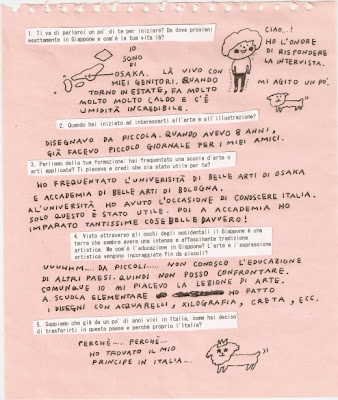 1. Ti va di parlarci un po' di te per iniziare? Da dove provieni
esattamente in Giappone e com'è la tua vita là?
IO
SONO
DI
OSAKA. LÀ VIVO CON
MIEI GENITORI. QUANDO
TORNO IN ESTATE, FA MOLTO
MOLTO MOLTO CALDO E C'È
UMIDITÀ INCREDIBILE.
CIAO..!
HO L'ONORE
DI RISPONDERE
LA INTERVISTA.
MI AGITO UN PO'.
2. Quando hai iniziato ad interessarti all'arte e all'illustrazione?
DISEGNAVO DA PICCOLA. QUANDO AVEVO 8 ANNI,
GIÀ FACEVO PICCOLO GIORNALE PER I MIEI AMICI.
3. Parliamo della tua formazione: hai frequentato una scuola d'arte o
arti applicate? Ti piaceva e credi che sia stato utile per te?
HO FREQUENTATO L'UNIVERISITÀ DI BELLE ARTI DI OSAKA
E ACCADEMIA DI BELLE ARTI DI BOLOGNA.
ALL'UNIVERSITÀ HO AVUTO L'OCCASIONE DI CONOSCERE ITALIA.
SOLO QUESTO È STATO UTILE. POI A ACCADEMIA HO
IMPARATO TANTISSIME COSE BELLE DAVVERO!
4. Visto attraverso gli occhi degli occidentali il Giappone è una
terra che sembra avere una intensa e affascinante tradizione
artistica. Ma com'è l'educazione in Giappone? L'arte e l'espressione
artistica vengono incoraggiate fin da piccoli?
UUUHHM.... DA PICCOLI..... NON CONOSCO L'EDUCAZIONE
DI ALTRI PAESI. QUINDI NON POSSO CONFRONTARE.
COMUNQUE IO MI PIACEVO LA LEZIONE DI ARTE.
A SCUOLA ELEMENTARE HO FATTO
I DISEGNI CON ACQUARELLI, XILOGRAFIA, CRETA, ECC.
5. Sappiamo che già da un po' di anni vivi in Italia, come hai deciso
di trasferirti in questo paese e perché proprio l'Italia?
PERCHÈ.... PERCHÈ...
HO TROVATO IL MIO
PRINCIPE IN ITALIA....